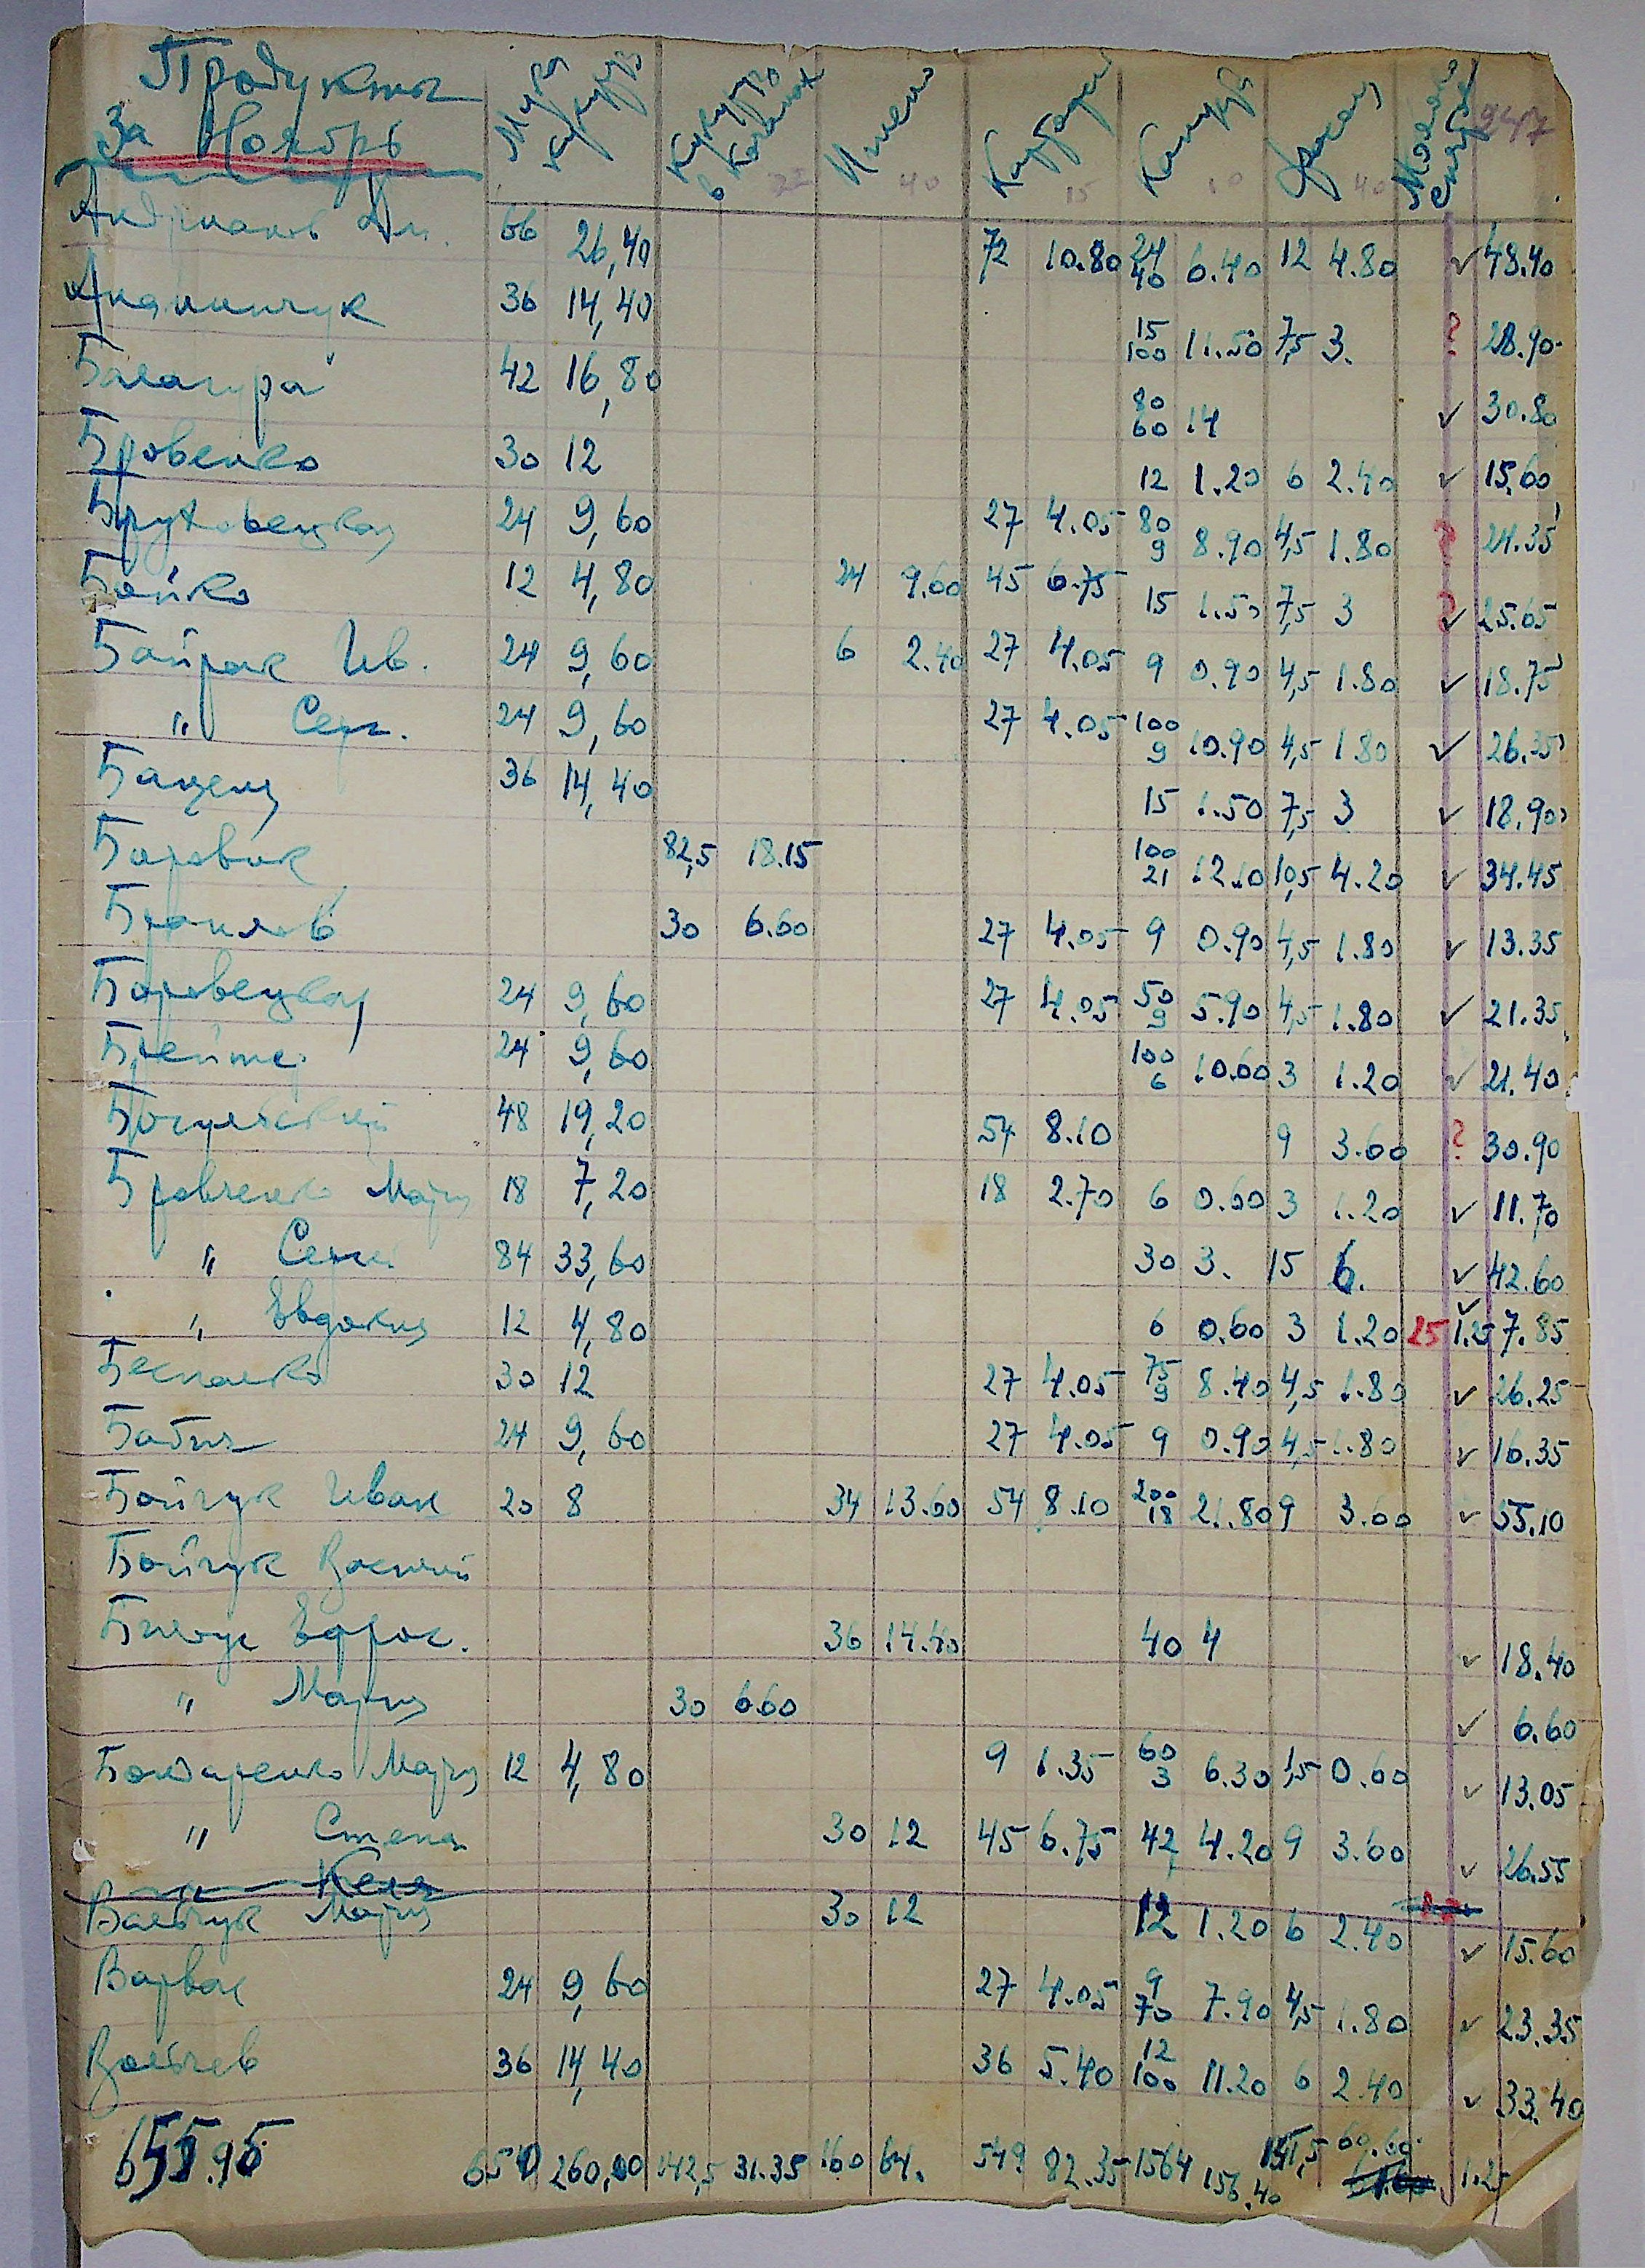 Продукты Мука кукуруз Кукуруза в качанах 22 Пшено 40 Картофель 15 Кукуруза 10 Фасоль 40 247
За Ноябрь
Андрианов Дм. 66 26,40 72 10.80 24 40 6.40 12 4.80 ✓ 48.40
Ананийчук 36 14,40 15 100 11.50 7,5 3. ? 28.90
Балагура 42 16,80 80 60 14 ✓ 30.80
Бровенко 30 12 12 1.20 6 2.40 ✓ 15,60
24 9,60 27 4.05 80 9 8.90 4,5 1.80 ? 24.35
Бойко 12 4,80 24 9.60 45 6.75 15 1.50 7,5 3 ? ✓ 25.65
Байрак Ив. 24 9,60 6 2.40 27 4.05 9 0.90 4,5 1.80 ✓ 18.75
" Серг. 24 9,60 27 4.05 100 9 10.90 4,5 1.80 ✓ 26.35
36 14,40 15 1.50 7,5 3 ✓ 18.90
Боровик 82,5 18.15 100 21 12.10 10,5 4.20 ✓ 34.45
30 6.60 27 4.05 9 0.90 4,5 1.80 ✓ 13.35
Боровецкая 24 9,60 27 4.05 50 9 5.90 4,5 1.80 ✓ 21.35
24 9,60 100 6 10.60 3 1.20 ✓ 21.40
48 19,20 54 8.10 9 3.60 ? 30.90
Бровченко Мария 18 7,20 18 2.70 6 0.60 3 1.20 ✓ 11.70
" 84 33,60 30 3. 15 6. ✓ 42.60
" Евдокия 12 4,80 6 0.60 3 1.20 25 1.25 ✓ 7.85
Беспалко 30 12 27 4.05 75 9 8.40 4,5 1.80 ✓ 26.25
Бабич 24 9,60 27 4.05 9 0.90 4,5 1.80 ✓ 16.35
Бойчук Иван 20 8 34 13.60 54 8.10 200 18 21.80 9 3.60 ✓ 55.10
Бойчук Василий
36 14.40 40 4 ✓ 18.40
" Мария 30 6.60 ✓ 6.60
Бондаренко Мария 12 4,80 9 1.35 60 3 6.30 1,5 0.60 ✓ 13.05
" Степан 30 12 45 6.75 42 4.20 9 3.60 ✓ 26.55
Вальчук Мария 30 12 12 1.20 6 2.40 ✓ 15.60
Варвак 24 9,60 27 4.05 9 70 7.90 4,5 1.80 ✓ 23.35
36 14,40 36 5.40 12 100 11.20 6 2.40 ✓ 33.40
655.95 650 260,00 142,5 31.35 160 64. 549 82.35 1564 156.40 151,5 60.60 1.25